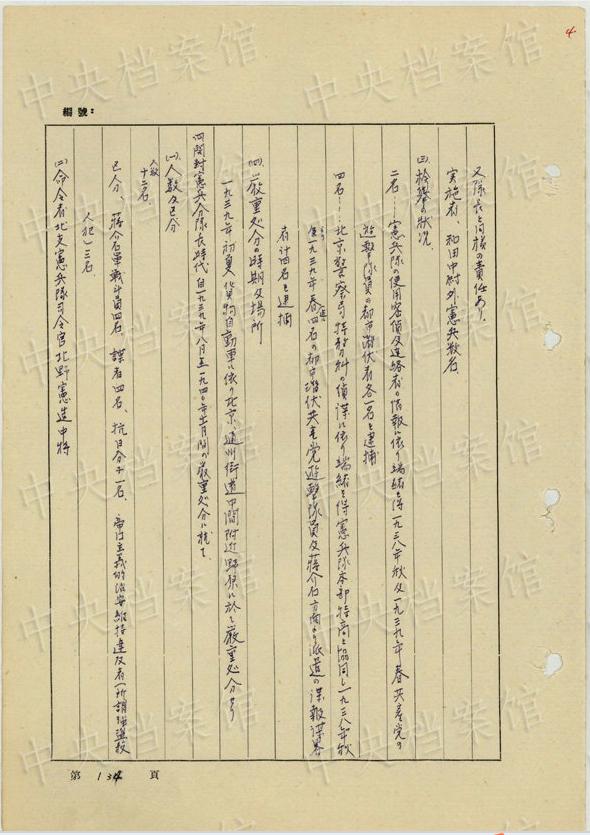 4
編號：
又隊長と同様の責任あり、
実施者、和田中尉外憲兵数名、
(三) 検挙の状況、
二名…憲兵隊の使用密偵及連絡者の情報に依り端緒を得一九三八年秋及一九三九年春共産党の
遊撃隊員の都市潜伏者各一名を逮捕
四名…北京警察局特務科の偵諜に依り端緒を得憲兵隊本部特高と協同し一九三八年秋
一九三九年春四名の都市潜伏共産党遊撃隊員及蒋介石方面より派遣の諜報謀略
者計四名を逮捕
(四) 厳重処分の時期及場所
一九三九年初夏貨物自動車に依り北京、通州街道中間附近野原に於て厳重処分せり
四 開封憲兵分隊長時代 自一九三九年八月至一九四〇年 月間の厳重処分に就て、
(一) 人数及区分
人数 十二名
区分、蒋介石軍戦斗員四名 諜者四名、抗日分子一名、帝国主義的治安維持違反者(所謂強盗殺
人犯)三名、
(二) 命令者北支憲兵隊司令官北野憲造中将
第 134 頁
中央档案馆